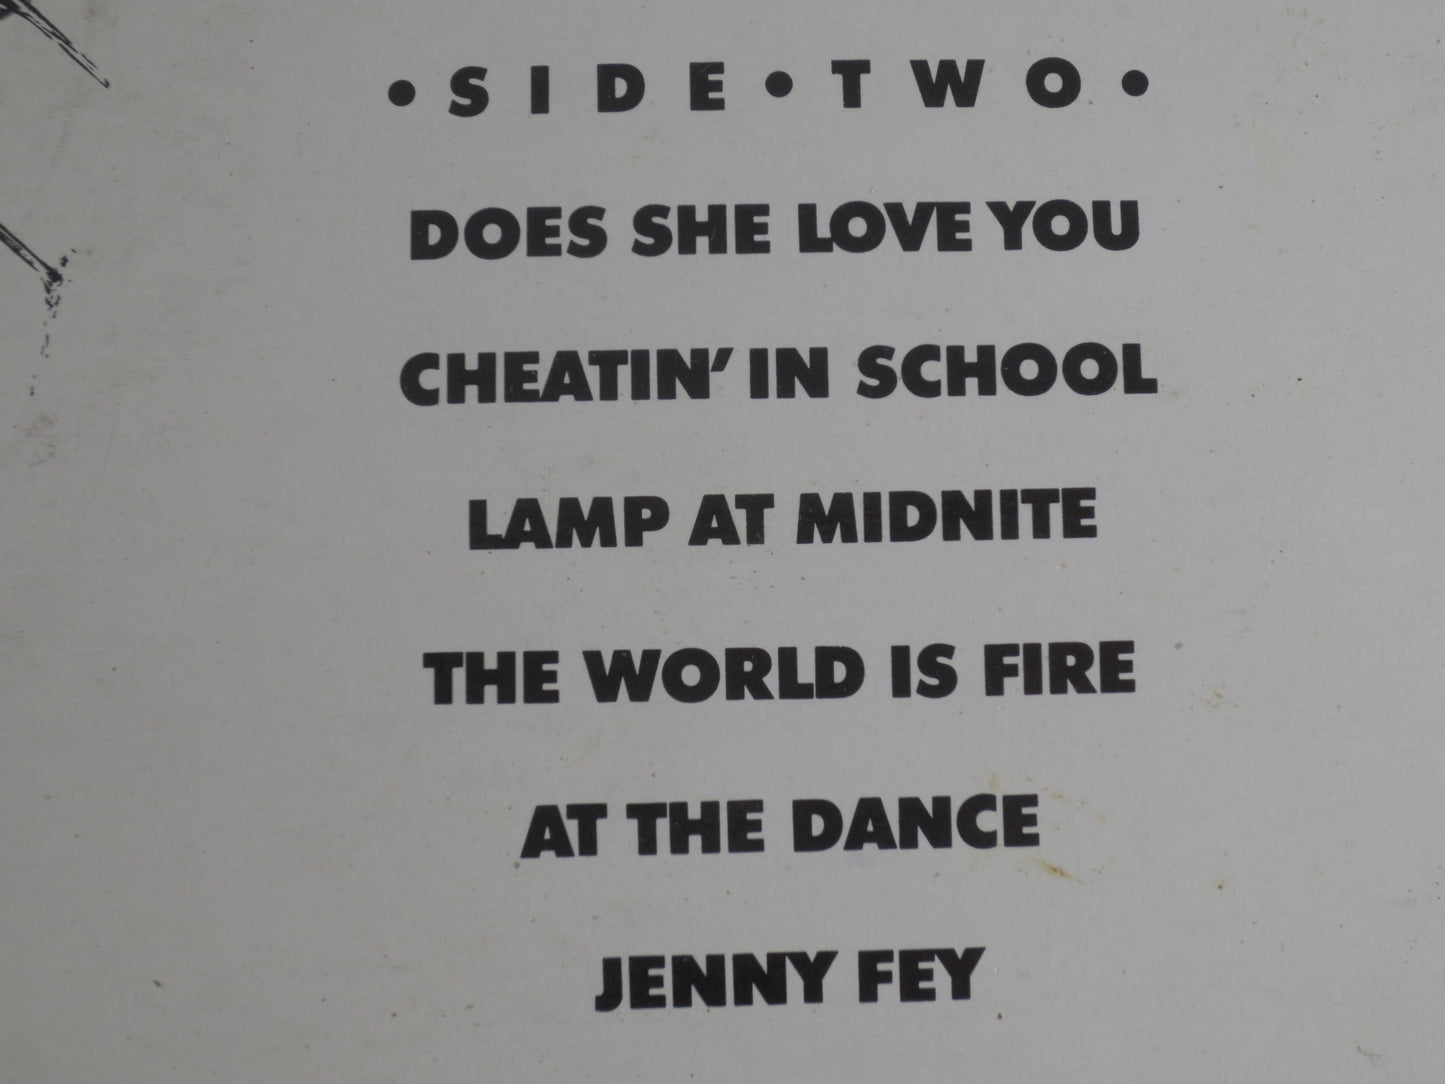 • SIDE • TWO •
DOES SHE LOVE YOU
CHEATIN' IN SCHOOL
LAMP AT MIDNITE
THE WORLD IS FIRE
AT THE DANCE
JENNY FEY